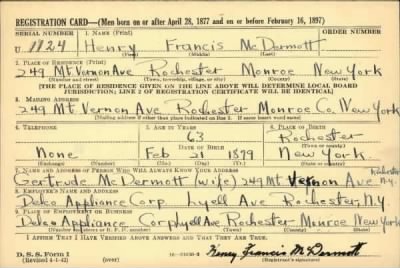 REGISTRATION CARD—(Men born on or after April 28, 1877 and on or before February 16, 1897)
SERIAL NUMBER 1. NAME (Print) ORDER NUMBER
U 1124 Henry Francis McDermott
(First) (Middle) (Last)
2. PLACE OF RESIDENCE (Print)
249 Mt. Vernon Ave Rochester Monroe New York
(Number and street) (Town, township, village, or city) (County) (State)
[THE PLACE OF RESIDENCE GIVEN ON THE LINE ABOVE WILL DETERMINE LOCAL BOARD
JURISDICTION; LINE 2 OF REGISTRATION CERTIFICATE WILL BE IDENTICAL]
3. MAILING ADDRESS
249 Mt. Vernon Ave Rochester Monroe Co. New York
[Mailing address if other than place indicated on line 2. If same insert word same]
4. TELEPHONE 5. AGE IN YEARS 6. PLACE OF BIRTH
63 Rochester
DATE OF BIRTH (Town or county)
None Feb 21 1879 New York
(Exchange) (Number) (Mo.) (Day) (Yr.) (State or country)
7. NAME AND ADDRESS OF PERSON WHO WILL ALWAYS KNOW YOUR ADDRESS
Gertrude McDermott (wife) 249 Mt Vernon Ave N.Y.
8. EMPLOYER'S NAME AND ADDRESS
Delco Appliance Corp Lyell Ave Rochester, N.Y.
9. PLACE OF EMPLOYMENT OR BUSINESS
Delco Appliance Corp Lyell Ave Rochester Monroe New York
(Number and street or R. F. D. number) (Town) (County) (State)
I AFFIRM THAT I HAVE VERIFIED ABOVE ANSWERS AND THAT THEY ARE TRUE.
D. S. S. Form 1
(Revised 4-1-42) (over) Henry Francis McDermott
(Registrant's signature)